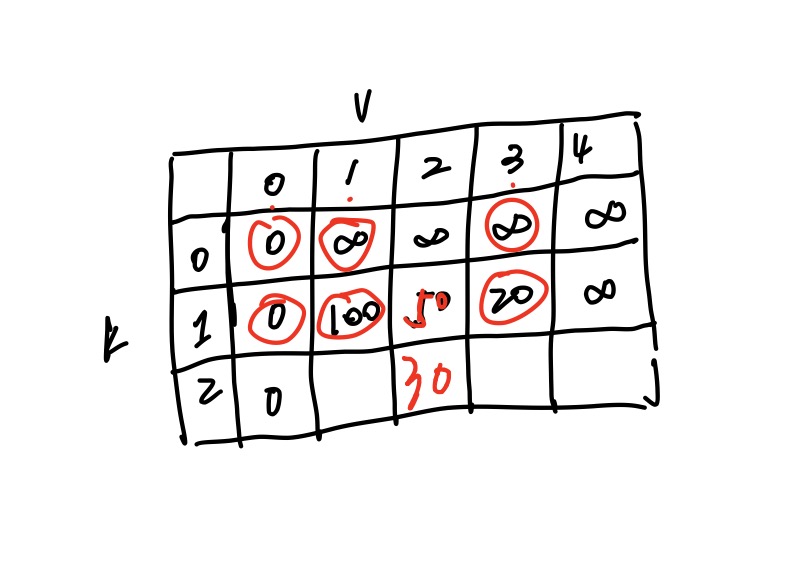 V
0 1 2 3 4
0 0 ∞ ∞ ∞ ∞
k 1 0 100 50 20 ∞
2 0 30